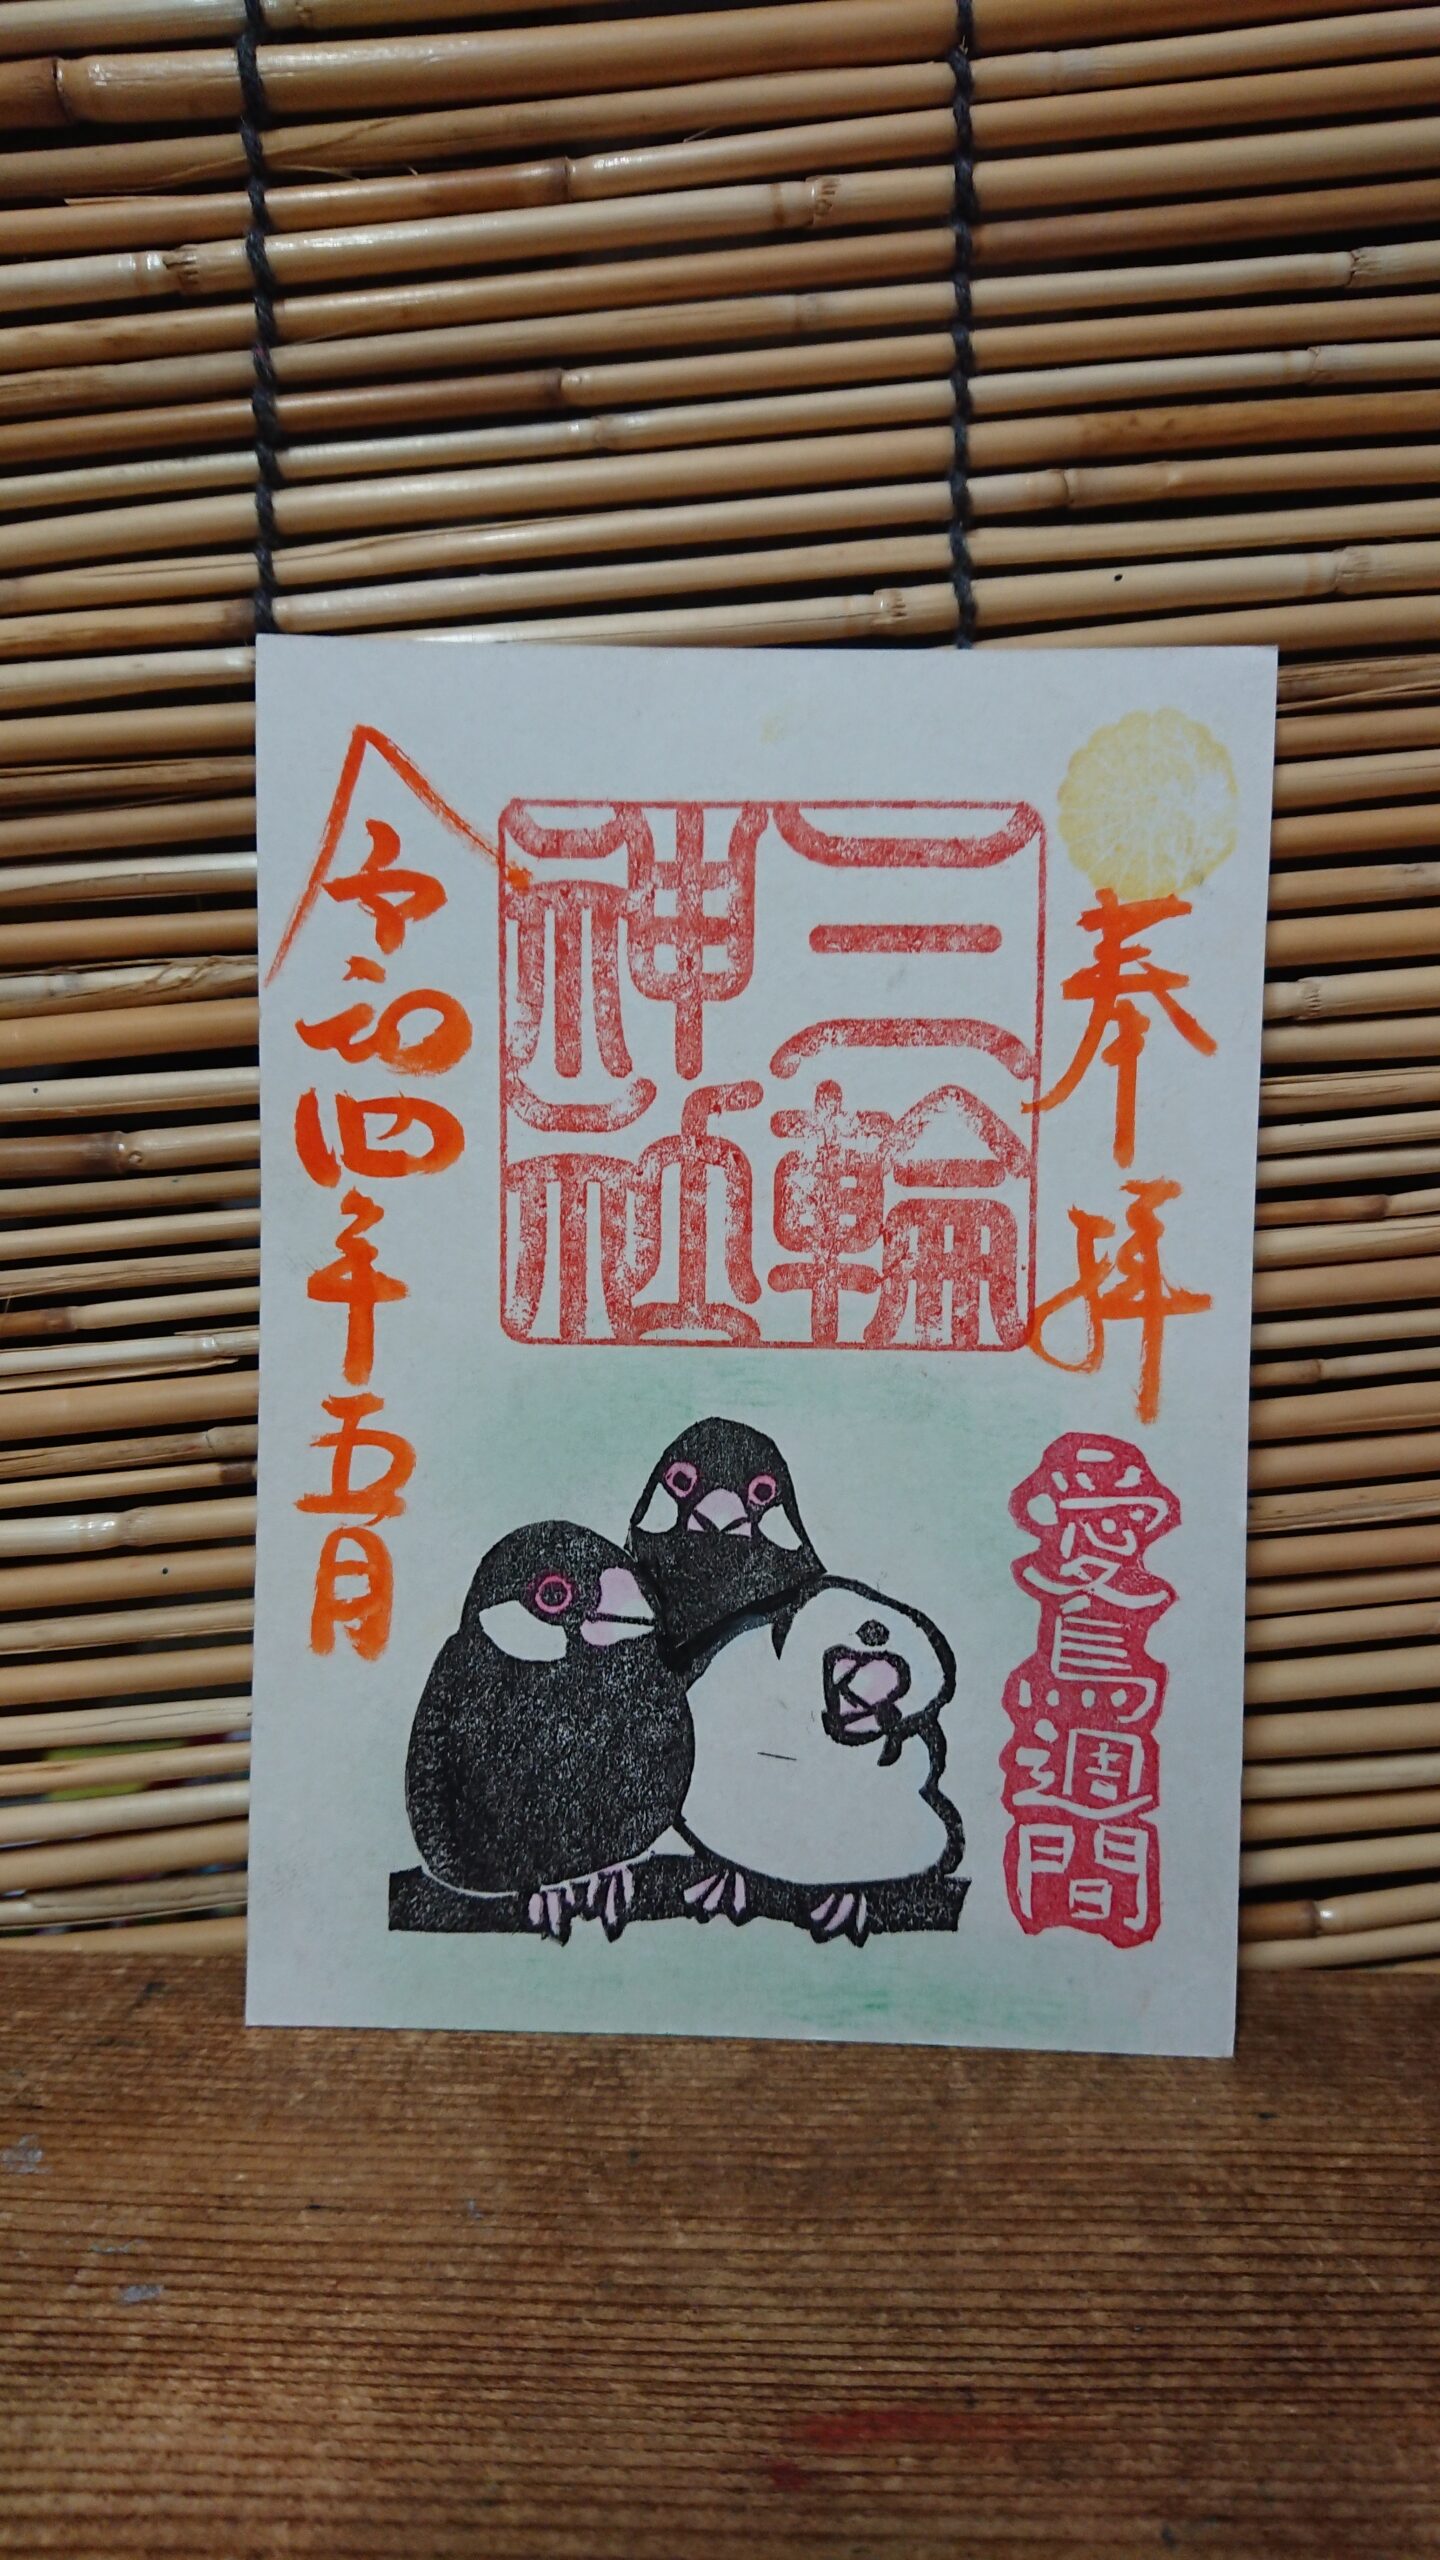 奉拝
愛鳥週間
三輪
神社
令和四年五月